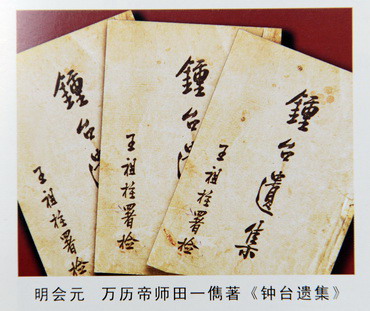 鍾台遺
王祖桂署检
鍾台
王祖桂署检
鍾台遺集
王祖桂署检
明会元 万历帝师田一儁著《钟台遗集》